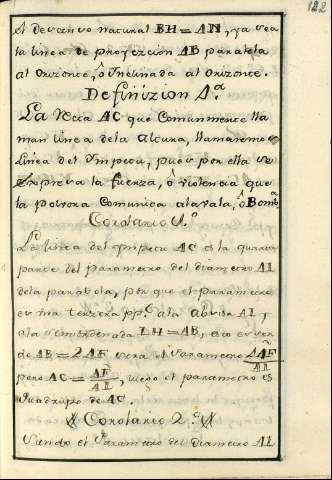 122
el Descenso natural BH=AN, ya sea
la linea de proyeccion AB paralela
al Orizonte, ô Inclinada al Orizonte.
Definizion 4.ª
La Recta AC que Comunmente lla
man linea de la altura, llamaremos
Linea del Impetu, pues por ella se
Expresa la fuerza, ô violencia que
la polvora Comunica ala vala, ô Bomb.ª
Corolario 1.º
La linea del impetu AC es la quarta
parte del parametro del Diametro AI
dela parabola, por que el parametro
es una terzera pp.l ala abzisa AI, y
ala
IH=AB, esto es
de AB=2AF sera el Parametro 4AF/AI
pero AC=AF/AI, luego el parametro es
Quadruplo de AC.
Corolario 2.º
Siendo el Parametro del Diametro AI